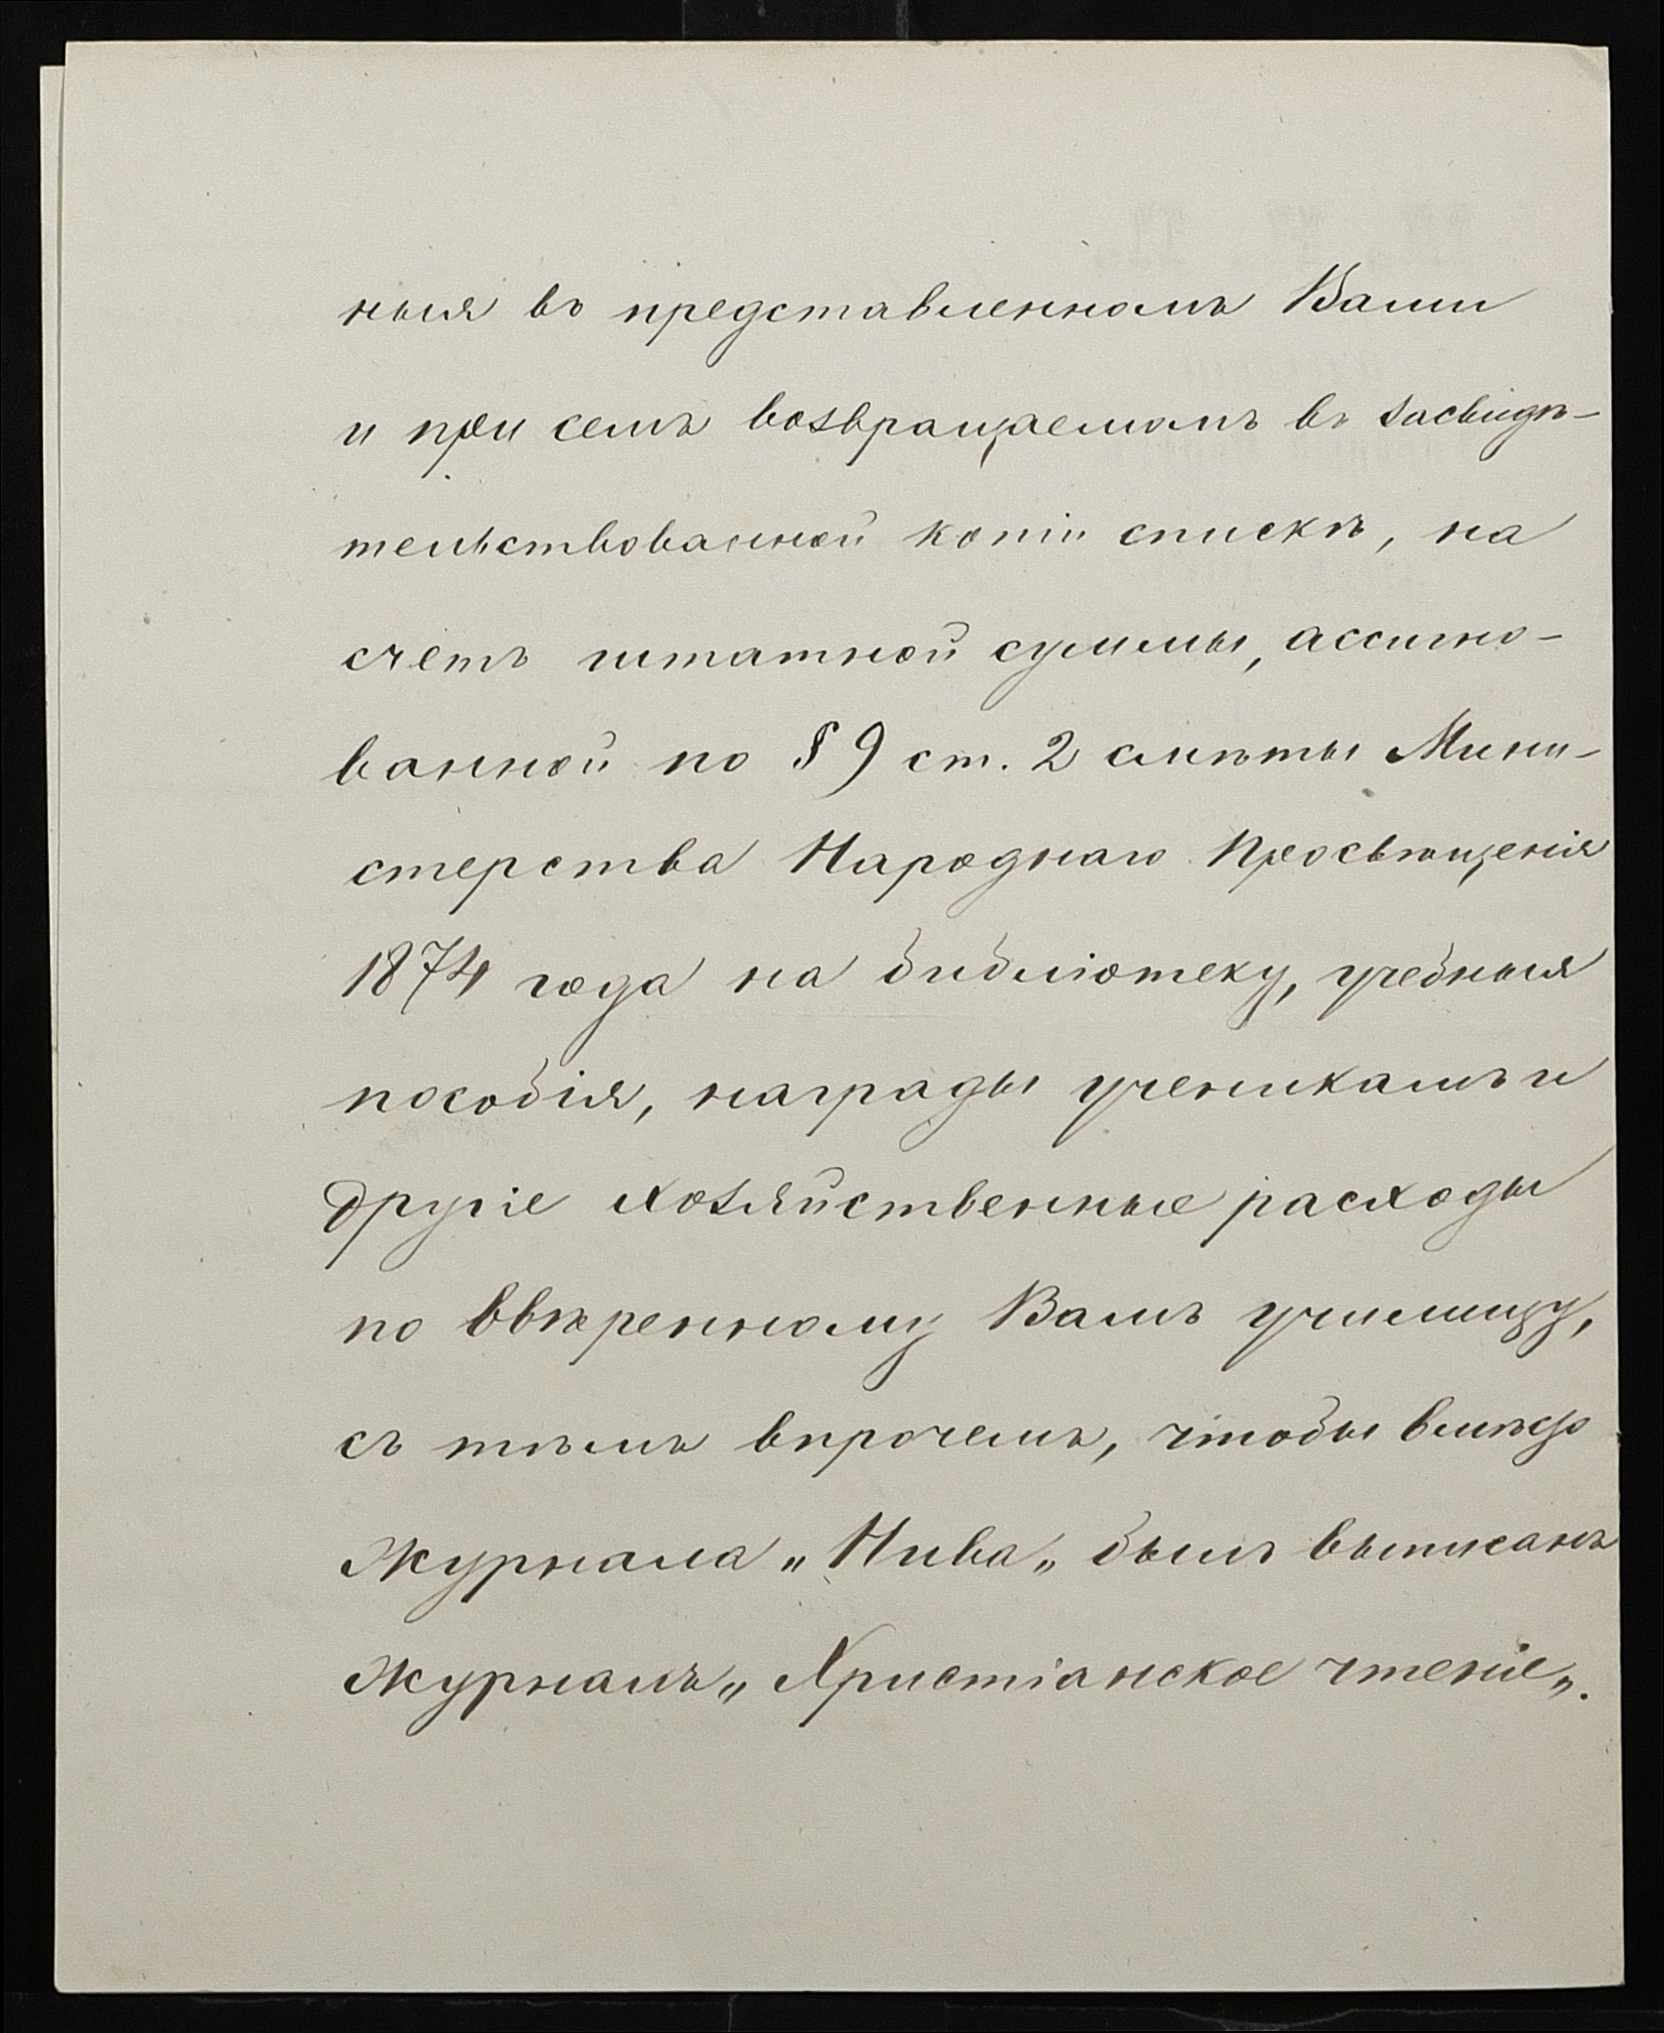 ныя въ представленномъ Вами
и при семъ возвращаемомъ въ засвидѣ-
тельствованной копіи спискѣ, на
счетъ штатной суммы, ассигно-
ванной по § 9 ст. 2 смѣты Мини-
стерства Народнаго Просвѣщенія
1874 года на библіотеку, учебныя
пособія, награды ученикамъ и
другіе хозяйственные расходы
по ввѣренному Вамъ училищу,
съ тѣмъ впрочемъ, чтобы вмѣсто
журнала „Нива„ былъ выписанъ
журналъ „Христіанское чтеніе„.